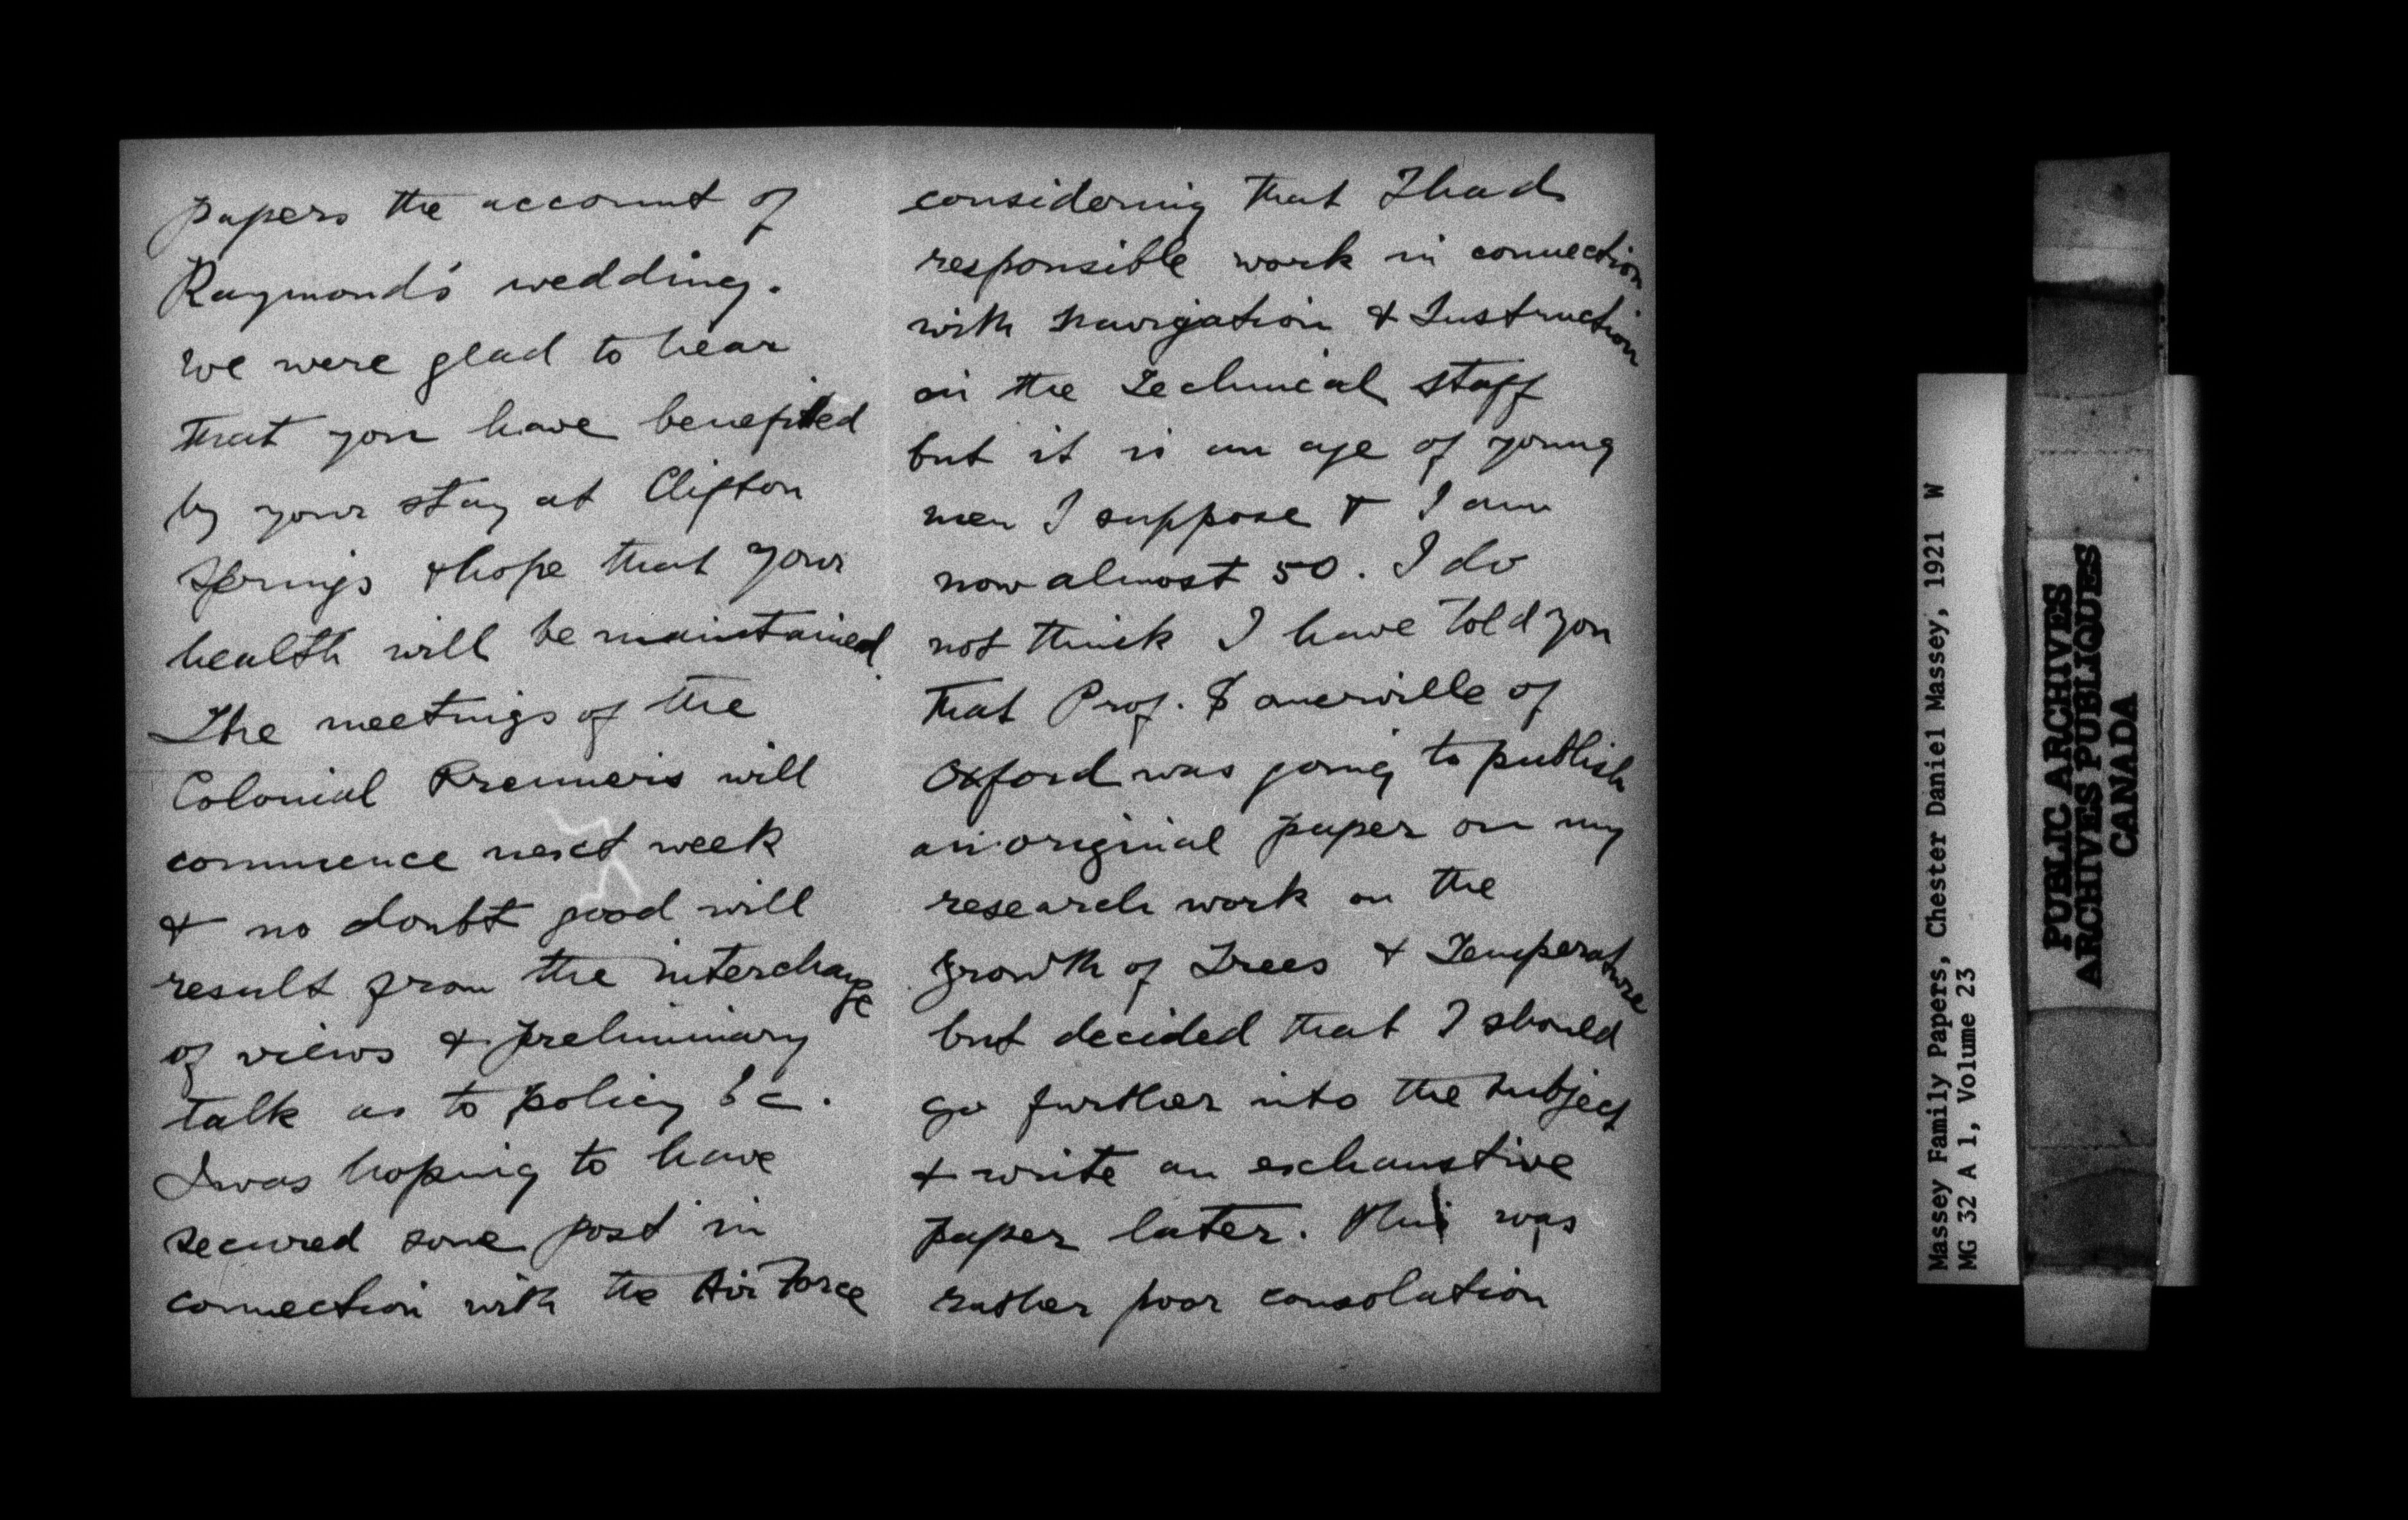 papers the account of
Raymond's wedding.
We were glad to hear
that you have benefited
by your stay at Clifton
Springs & hope that your
health will be maintained.
The meetings of the
Colonial Premiers will
commence next week
& no doubt good will
result from the interchange
of views & preliminary
talk as to policy &c.
I was hoping to have
secured some post in
connection with the Air Force
considering that I had
responsible work in connection
with Navigation & Instruction
on the Technical Staff
but it is an age of young
men I suppose & I am
now almost 50. I do
not think I have told you
that Prof. Somerville of
Oxford was going to publish
an original paper on my
research work on the
Growth of Trees & Temperature
but decided that I should
go further into the subject
& write an exhaustive
paper later. This was
rather poor consolation
Massey Family Papers, Chester Daniel Massey, 1921 W
MG 32 A 1, Volume 23
PUBLIC ARCHIVES
ARCHIVES PUBLIQUES
CANADA